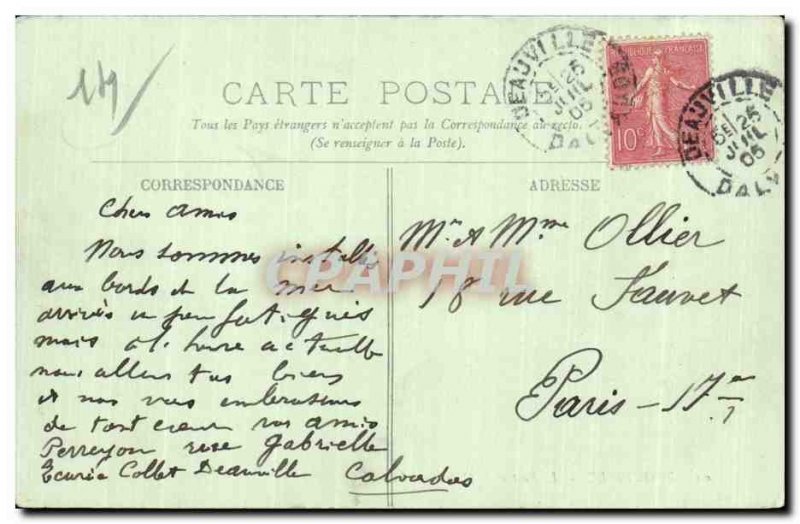 149
CARTE POSTALE
Tous les Pays étrangers n'acceptent pas la Correspondance au recto.
(Se renseigner à la Poste).
RÉPUBLIQUE FRANÇAISE
10c
DEAUVILLE
5E 25
JUIL
05
CALVADOS
DEAUVILLE
5E 25
JUIL
05
CALV
CORRESPONDANCE
Chers amis
Nous sommes installés
aux bords de la mer
arrivés un peu fatigués
mais à l'heure actuelle
nous allons tous bien
et nous vous embrassons
de tout cœur vos amis
Perreyon rue Gabrielle
Ecurie Collet Deauville Calvados
ADRESSE
Mr & Mme Ollier
18 rue Fauvet
Paris - 17e
CPAPHIL